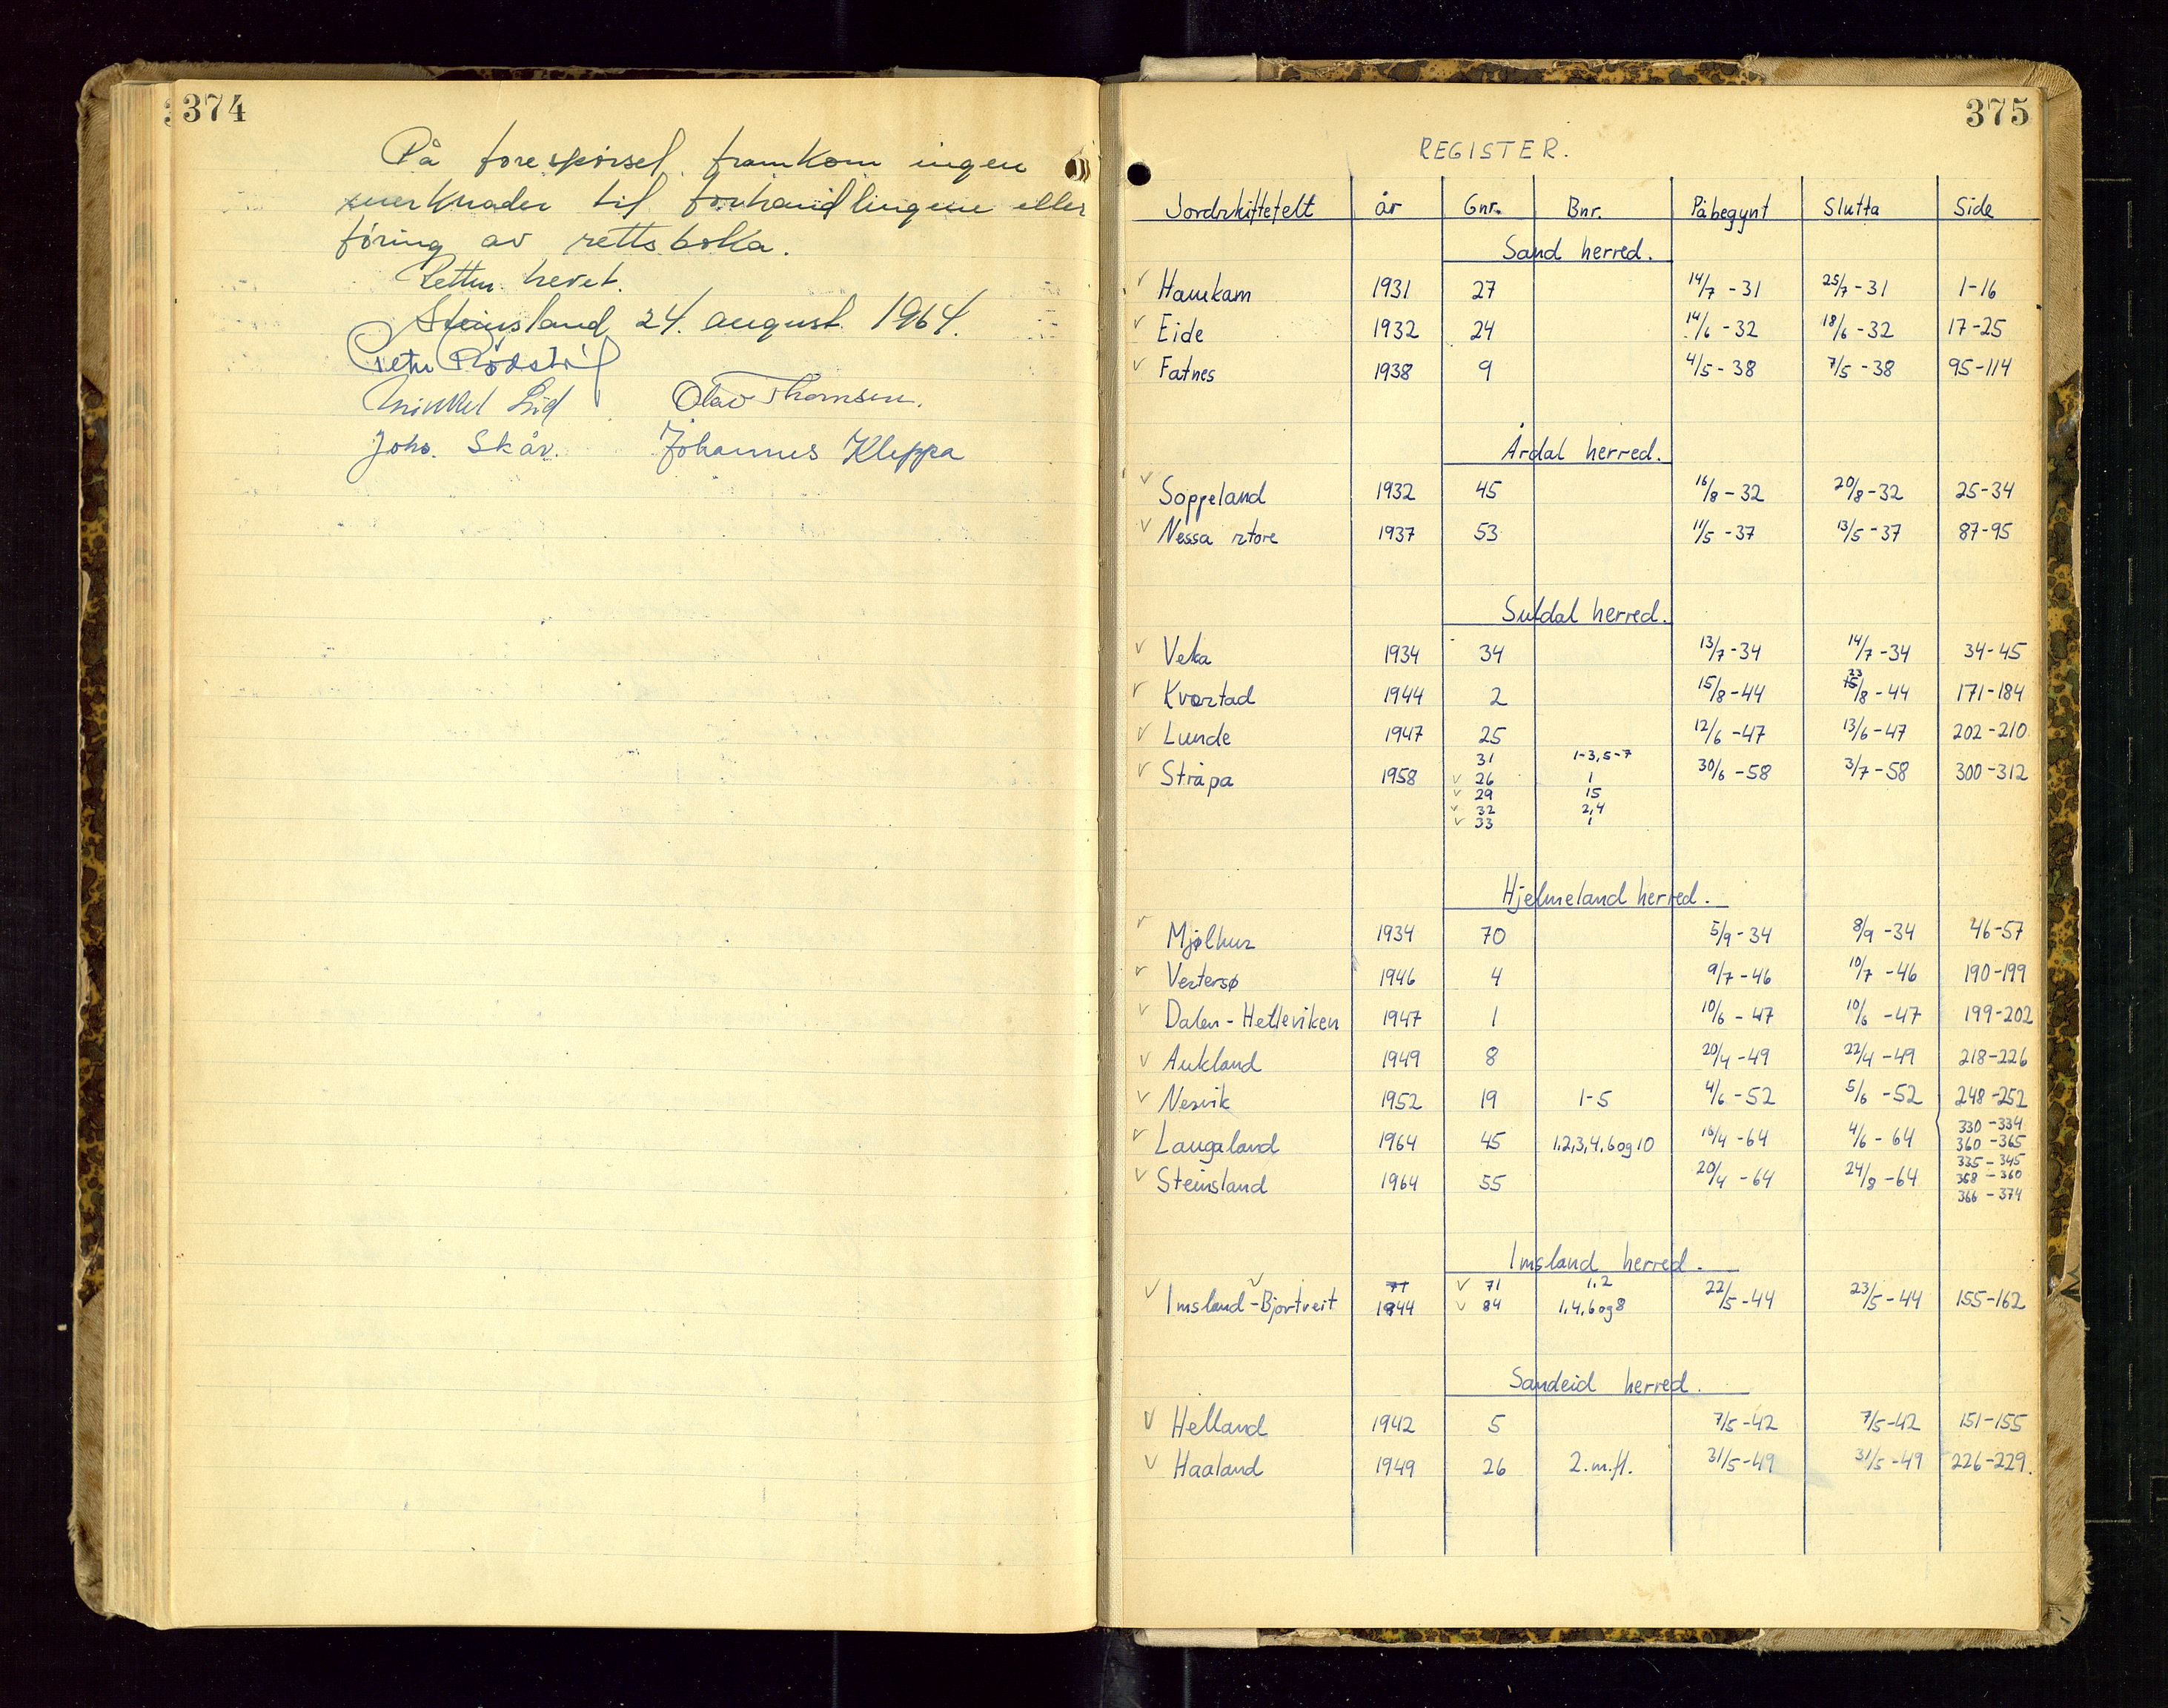 374
På forespørsel framkom ingen
merknader til forhandlingene eller
føring av rettsboka.
Retten hevet.
Steinsland 24. august 1964.
Lid Olav Thomsen.
Johs. Skår. Johannes Kleppa
375
REGISTER.
Jordskiftefelt år Gnr. Bnr. Påbegynt Slutta Side
Sand herred.
Hamkam 1931 27 14/7 -31 25/7 -31 1-16
Eide 1932 24 14/6 -32 18/6 -32 17-25
Fatnes 1938 9 4/5 - 38 7/5 -38 95-114
Årdal herred.
Soppeland 1932 45 16/8 -32 20/8 -32 25-34
Nessa store 1937 53 11/5 -37 13/5 -37 87-95
Suldal herred.
Veka 1934 34 13/7 -34 14/7 -34 34-45
23
Kvæstad 1944 2 15/8 -44 15/8 -44 171-184
Lunde 1947 25 12/6 -47 13/6 -47 202-210
31 1-3, 5-7
Stråpa 1958 26 1 30/6 -58 3/7 -58 300-312
29 15
32 2,4
33 1
Hjelmeland herred.
Mjølhus 1934 70 5/9 -34 8/9 -34 46-57
Vestersø 1946 4 9/7 -46 10/7 -46 190-199
Dalen - Helleviken 1947 1 10/6 - 47 10/6 -47 199-202
Aukland 1949 8 20/4 -49 22/4 -49 218-226
Nesvik 1952 19 1-5 4/6 -52 5/6 -52 248-252
330 -334
Laugaland 1964 45 1,2,3,4,6 og 10 16/4 -64 4/6 - 64 360 -365
335 - 345
Steinsland 1964 55 20/4 -64 24/8 -64 358 - 360
366 - 374
Imsland herred.
71 71 1,2
Imsland - Bjørtveit 1944 84 1,4,6 og 8 22/5 -44 23/5 -44 155-162
Sandeid herred.
Helland 1942 5 7/5 -42 7/5 -42 151-155
Haaland 1949 26 2.m.fl. 31/5 -49 31/5 -49 226-229.